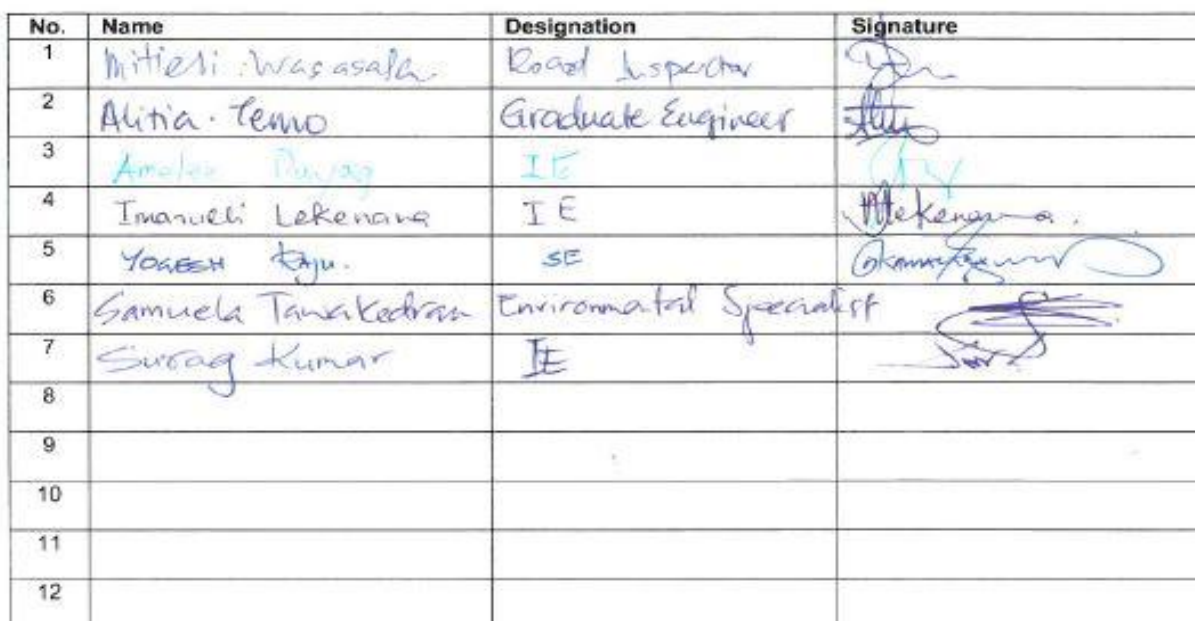 No. Name Designation Signature
1 Mitieli Wacasala. Road Inspector
2 Alitia Temo Graduate Engineer
3 IE
4 Imanueli Lekenaua IE
5 YOGESH Raju. SE
6 Samuela Tawakedrau Environmatal Specialist
7 Surag Kumar IE
8
9
10
11
12